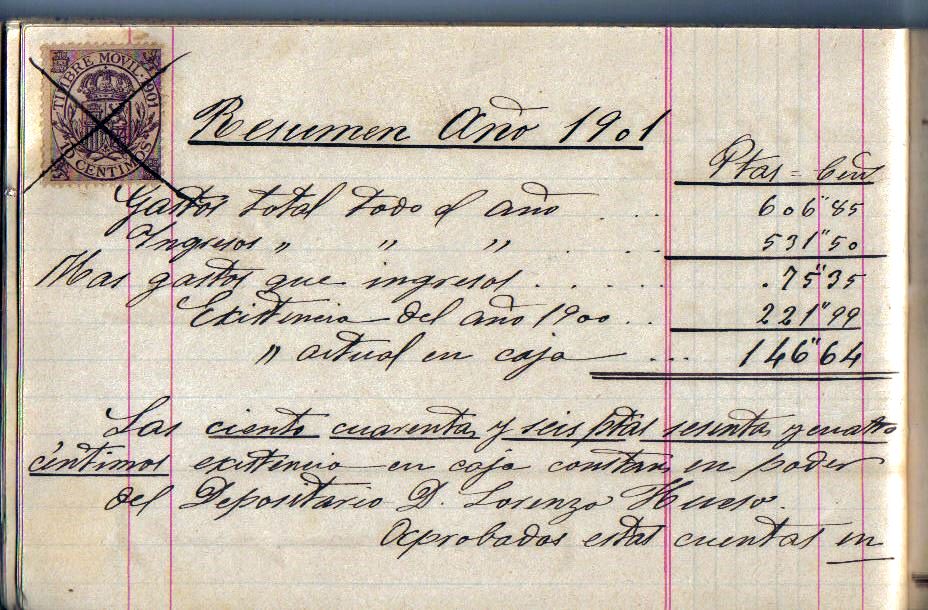 TIMBRE MOVIL·1901
10 CENTIMOS
Resumen Año 1901
Ptas = Cent
Gastos total todo el año . . . 606"85
Ingresos " " " . . . 531"50
Mas gastos que ingresos . . . . . . 75"35
Existencia del año 1900 . . 221"99
" actual en caja . . . 146"64
Las ciento cuarenta y seis ptas sesenta y cuatro
céntimos existencia en caja constan en poder
del Depositario D. Lorenzo Hueso.
Aprobadas estas cuentas en